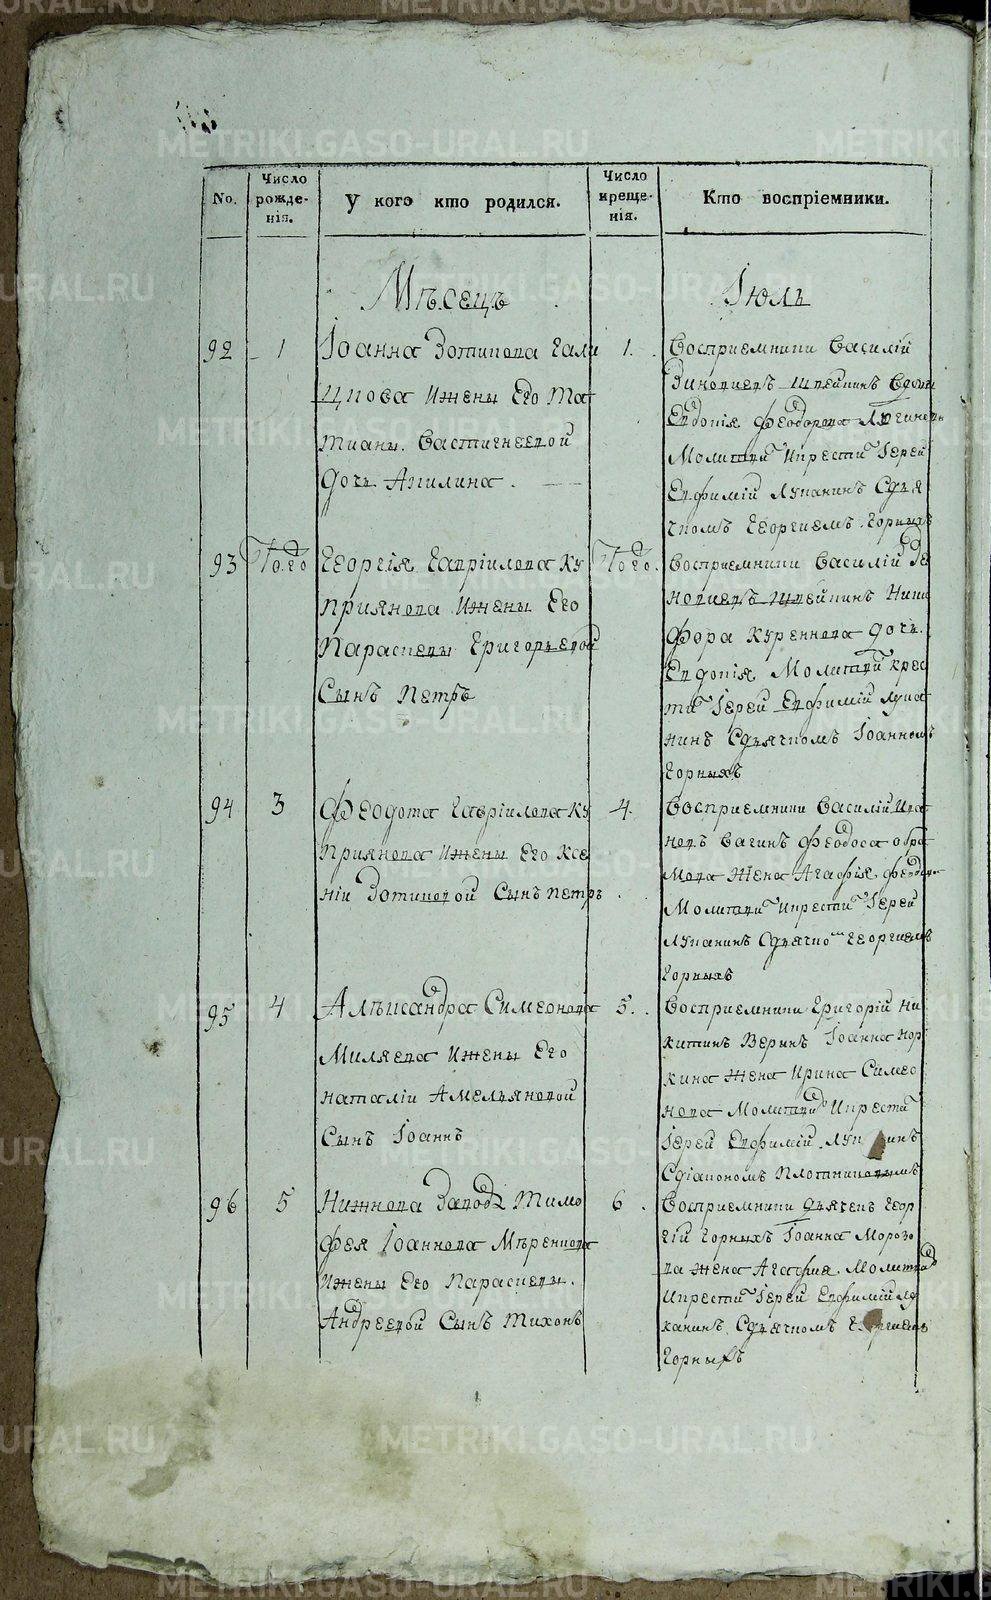 No.
Число рожде-
нія.
У кого кто родился.
Число
креще-
нія.
Кто воспріемники.
Мѣсецъ Іюль
92 1 Іоанна Зотикова Гали
цкова Ижены Его Та
тианы Евстигнеевой
дочь Акилина
1. Восприемники Василій
Зиновиевъ
Евдокія Феодорова
Молитвц Икрести Іерей
Евфимій Луканинъ Сдья
чкомъ Георгиемъ Горныхъ
93 Того Георгія Гавріилова Ку
приянова Ижены Его
Параскевы Григорьевой
Сынъ Петръ
Того. Восприемники Василій Зе
новиевъ Ники
фора Куренкова дочь
Евдокія Молитвц Крес
ти Іерей Евфимій Лука
нинъ Сдьячкомъ Іоанномъ
Горныхъ
94 3 Феодота Гавріилова Ку
приянова Ижены Его Ксе
ніи Зотиковой Сынъ Петръ
4. Восприемники Василій Ива
новъ Вагинъ Феодоса Абра
мова Жена Агафія
Молитвц Икрести Іерей
Луканинъ Сдьячко Георгиемъ
Горныхъ
95 4 Алѣксандра Симеонова
Миляева Ижены Его
наталіи Амельяновой
Сынъ Іоаннъ
5. Восприемники Григорій Ни
китинъ Веринъ Іоанна Нор
кина Жена Ирина Симео
нова Молитвц Икрести
Іерей Евфимій
Сдіакономъ Плотниковымъ
96 5 Нижнева Завода Тимо
фея Іоаннова Меренкова
Ижены Его Параскевы
Андреевой Сынъ Тихонъ
6. Восприемники дьячекъ Геор
гій Горныхъ Іоанна Морозо
ва Жена Агафия Молитвц
Икрести Іерей Евфимій Лу
канинъ Сдьячкомъ
Горныхъ
METRIKI.GASO-URAL.RU